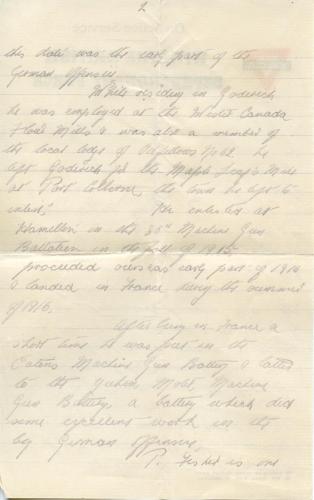 2
this date was the early part of the
German offensive.
While residing in Goderich
he was employed at the Western Canada
Flour Mills & was also a member of
the local lodge of Oddfellows No 62. He
left Goderich for the Maple Leaf Mill
at Port Colborne, the town he left to
enlist. He enlisted at
Hamilton in the 86th Machine Gun
Battalion in the fall of 1915,
proceeded overseas early part of 1916
& landed in France during the summer
of 1916.
After being in France a
short time he was put in the
Eatons Machine Gun Battery & latter
to the Motor Machine
Gun Battery, a battery which did
some excellent work in the
big German Offensive.
P. Fisher is one